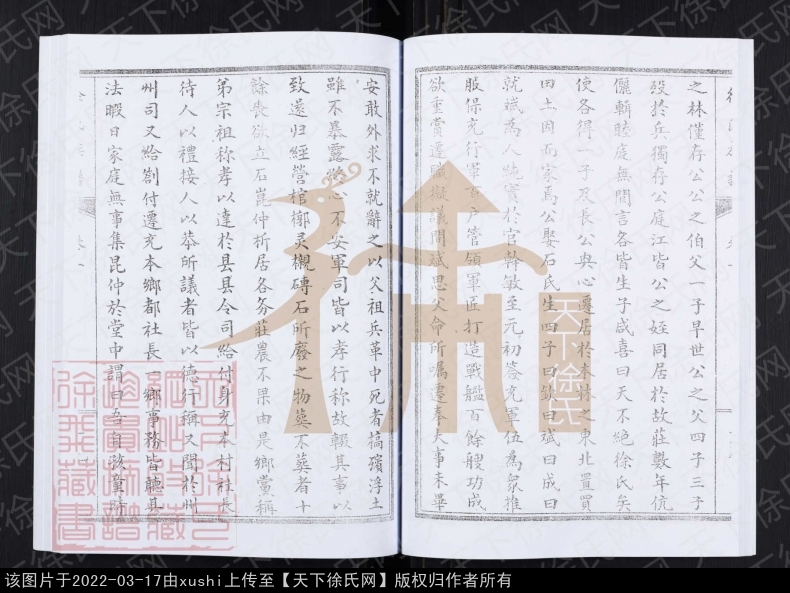 之林僅存公公之伯父一子早世公之父四子三子
殁於兵獨存公庭江皆公之姪同居於故莊數年伉
儷輯睦庭無間言各皆生子咸喜曰天不絕徐氏矣
使各得一子及長公與心遷居於本林之東北置買
田土因而家焉公娶石氏生四子曰欽曰斌曰成曰
就斌為人純實於官幹敏至元初簽充軍伍為眾推
服保充行軍百户管領軍匠打造戰艦百餘艘功成
欲重賞遷職擬議間斌思父命所囑遷奉大事未畢
安敢外求不就辭之以父祖兵革中死者槁殯浮土
雖不暴露終心不安軍司皆以孝行称故輟其事以
致遂归經營棺槨灵櫬磚石所廢之物塟不塟者十
餘喪欲立石崑仲析居各务莊農不果由是鄉黨稱
弟宗祖称孝以達於县县令司給付身充本村社長
待人以禮接人以恭所議者皆以德行稱又聞於州
州司又給劄付遷充本鄉都社長一鄉事務皆聽其
法暇日家庭無事集昆仲於堂中謂曰吾自
天下徐氏
该图片于2022-03-17由xushi上传至【天下徐氏网】版权归作者所有